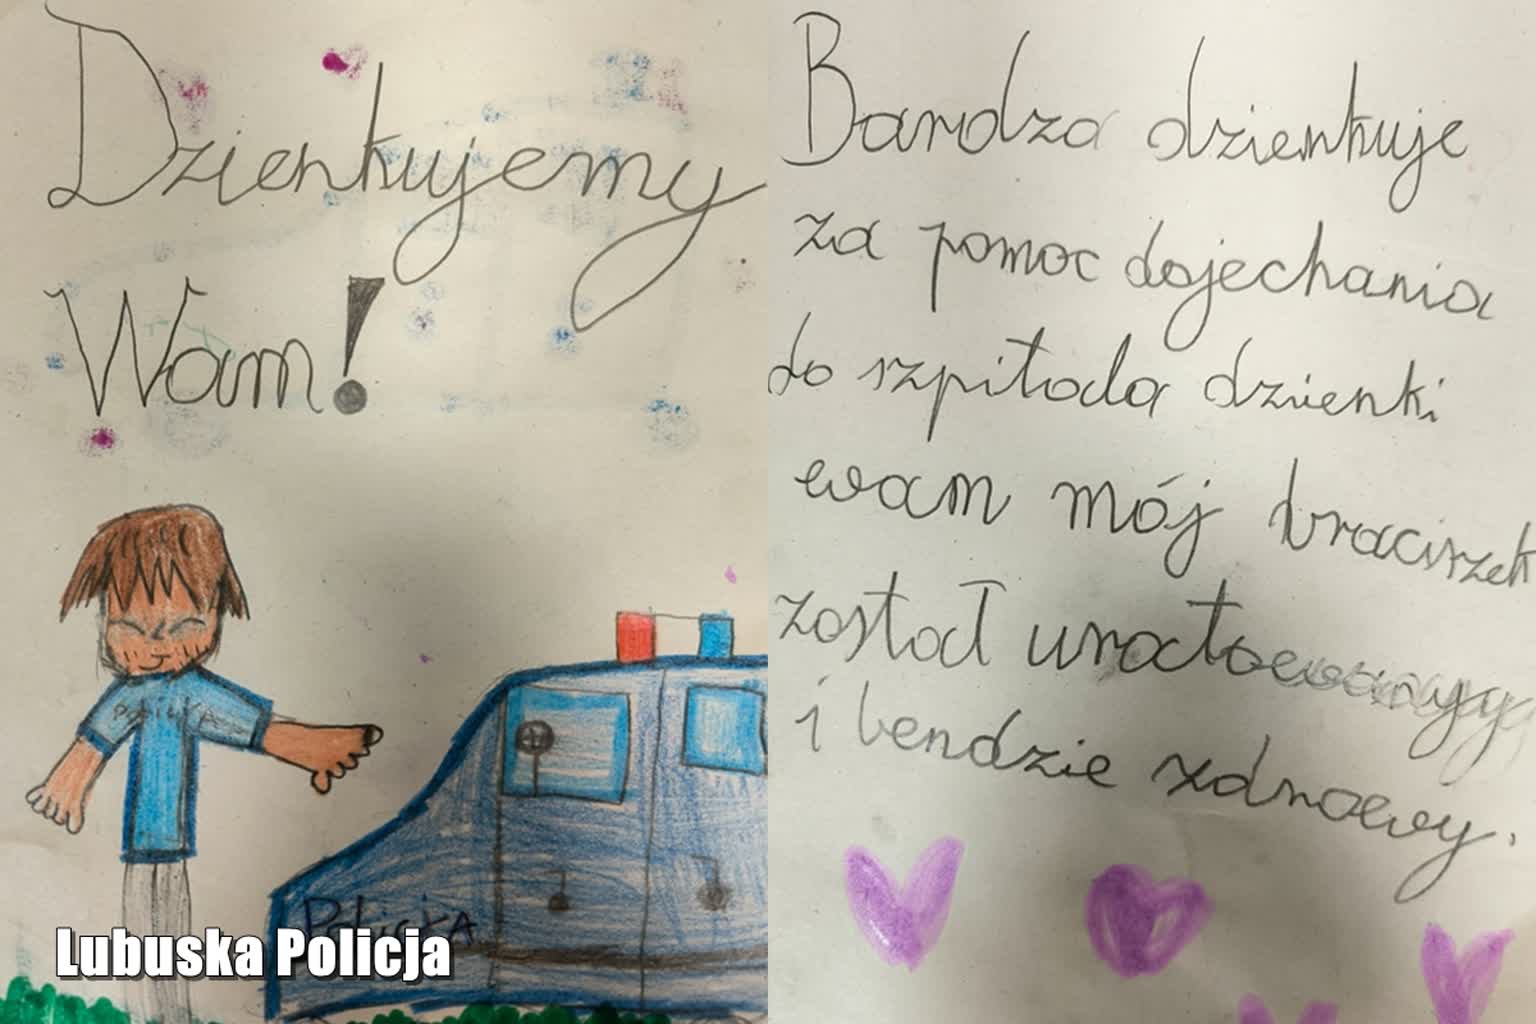 Dzienkujemy
Wam!
Policja
Lubuska Policja
Bardza dzienkuje
za pomoc dojechania
do szpitala dzienki
wam mój braciszek
zostoł uratowany
i bendzie zdrowy.